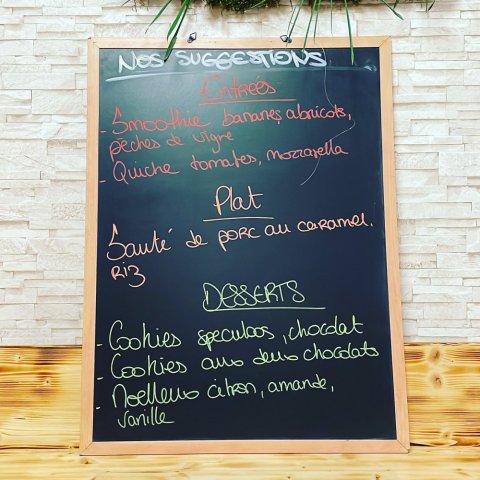 Nos SUGGESTIONS
Entrées
- Smoothie bananes, abricots,
pêches de vigne
- Quiche tomates, mozzarella
Plat
Sauté de porc au caramel.
Riz
DESSERTS
- Cookies speculoos, chocolat
- Cookies aux deux chocolats
- Moelleux citron, amande,
vanille